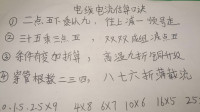 电线电流估算口诀
① 二点五下乘以九,往上减一顺号走
② 三十五乘三点五,双双成组减点五
③ 条件有变加折算,高温九折铜升级
④ 穿管根数二三四,八七六折满载流
1.5 2.5×9 4×8 6×7 10×6 16×5 25×